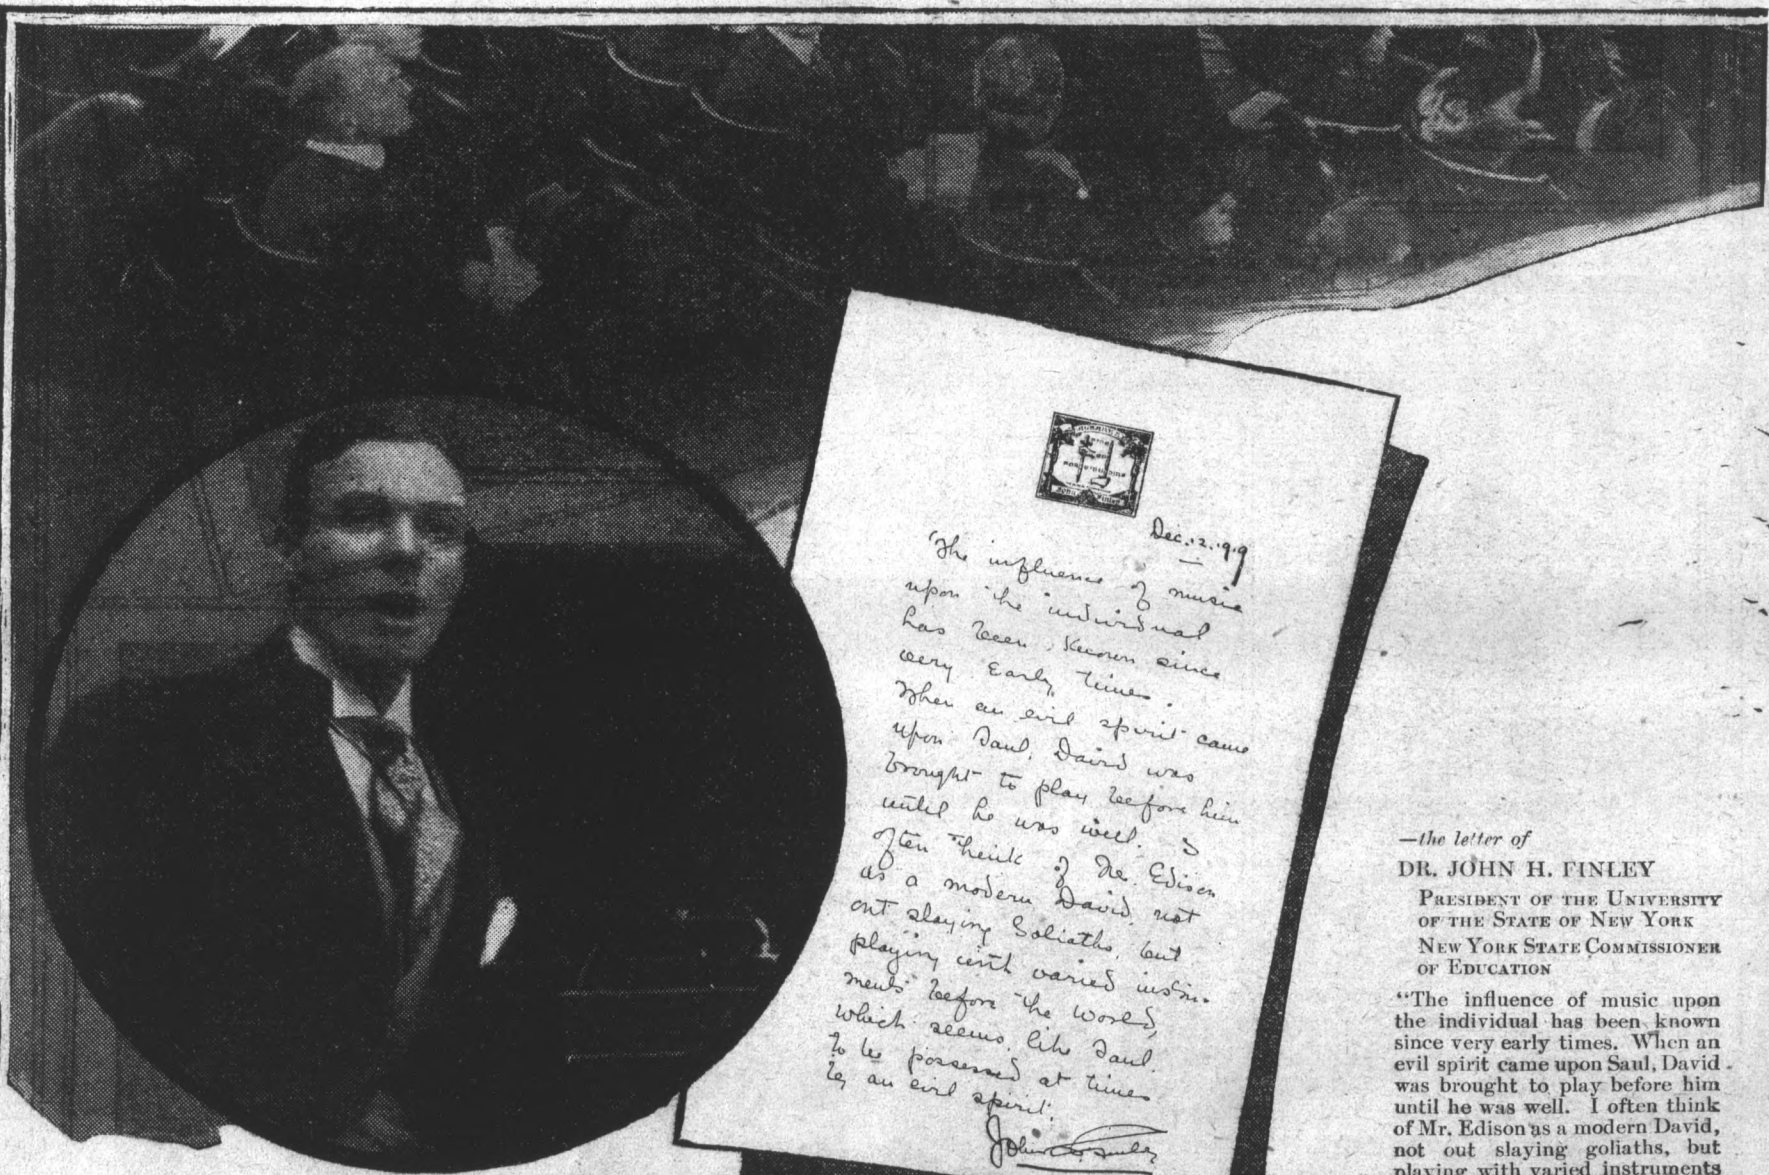 Dec. 12. 1919
"The influence of music
upon the individual
has been known since
very early times.
When an evil spirit came
upon Saul, David was
brought to play before him
until he was well. I
often think of Mr. Edison
as a modern David, not
out slaying Goliaths, but
playing with varied instru-
ments before the world,
which seems, like Saul,
to be possessed at times
by an evil spirit."
John H. Finley
—the letter of
DR. JOHN H. FINLEY
PRESIDENT OF THE UNIVERSITY
OF THE STATE OF NEW YORK
NEW YORK STATE COMMISSIONER
OF EDUCATION
"The influence of music upon
the individual has been known
since very early times. When an
evil spirit came upon Saul, David
was brought to play before him
until he was well. I often think
of Mr. Edison as a modern David,
not out slaying goliaths, but
playing with varied instruments